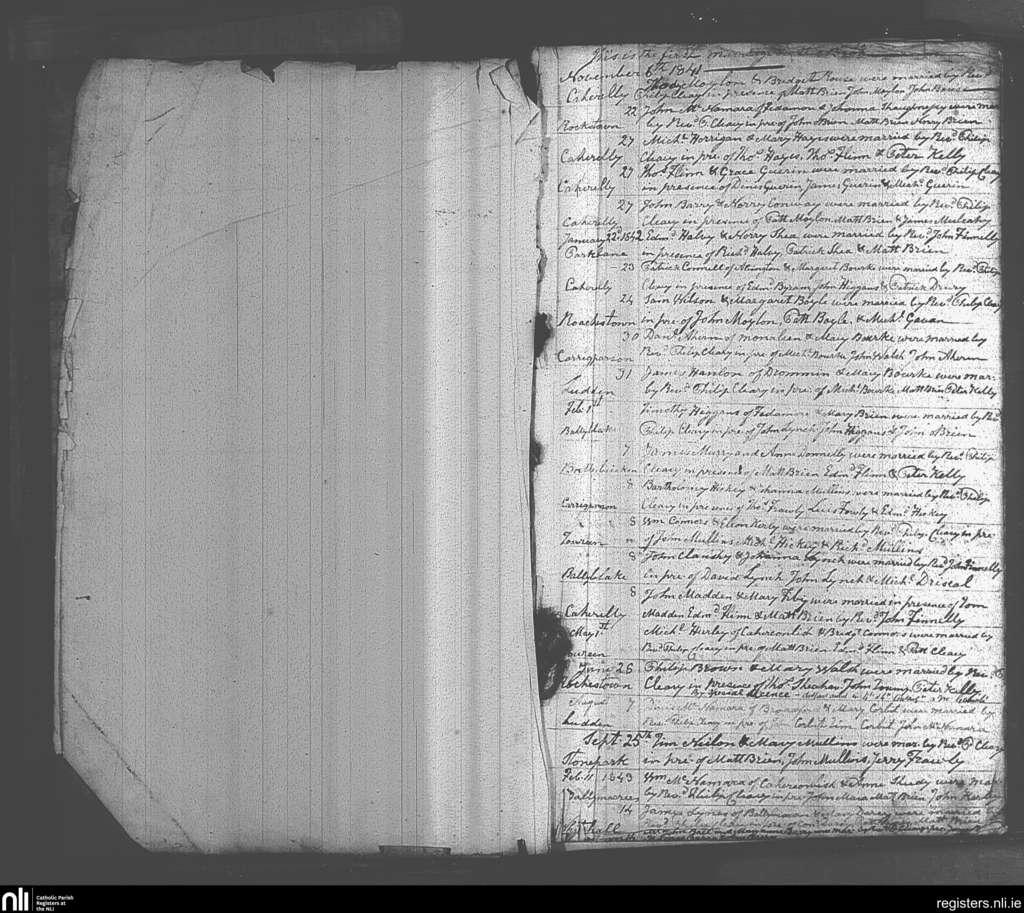 This is the first
November 6th 1841
Thos Moylon & Bridget House were married by Revd
Caherelly Philip Cleary in presence of Matt Brien John Moylon John Bourke
22 John McNamara of Fedamon & Johanna Shaughnessy were mar
Rockstown by Revd P. Cleary in pre of John Brien Matt Brien Henry Brien
27 Michl Horrigan & Mary Hayes were married by Revd Philip
Caherelly Cleary in pre. of Thos Hayes, Thos Flinn & Peter Kelly
27 Thos Flinn & Grace Guerin were married by Revd Philip Cleary
Caherelly in presence of Denis Guerin James Guerin & Michl Guerin
27 John Barry & Norry Conway were married by Revd Philip
Caherelly Cleary in presence of Patt Moylon Matt Brien & James Mulcahy
January 22d 1842 Edmd Haley & Norry Shea were married by Revd John Finnelly
Parklane in presence of Richd Haley, Patrick Shea & Matt Brien
23 Patrick Connell of & Margaret Bourke were married by Revd Philip
Caherelly Cleary in presence of Edmd Byram John Higgans & Patrick Drury
24 Sam Wilson & Margaret Boyle were married by Revd Philip Cleary
Roachestown in pre of John Moylon, Patt Boyle, & Michl Gavan
30 Danl Ahern of monaleen & Mary Bourke were married by
Carrigparson Revd Philip Cleary in pre of Michl Bourke John Walsh John Aherin
31 James Hanlon of Drommin & Mary Bourke were mar-
Ludden by Revd Philip Cleary in pre. of Michl Bourke Matt Brien Peter Kelly
Feb: 1st Timothy Higgans of Fedamore & Mary Brien were married by Revd
Ballyblake Philip Cleary in pre of John Lynch John Higgans & John OBrien
7 James Murry and Anne Donnelly were married by Revd Philip
Cleary in presence of Matt Brien Edmd Flinn & Peter Kelly
8 Bartholomey Hickey & Johanna Mullins were married by Revd Philip
Carrigparson Cleary in presence of Thos Frawly & Edmd Hickey
8 Wm Connors & Ellen Kerby were married by Revd Philip Cleary in pre
Toureen of Jem Mullins Michl Hickey & Richd Mullins
8 John Clanchy & Johanna Lynch were married by Revd John Finnelly
Ballyblake in pre. of David Lynch John Lynch & Michl Driscal
8 John Madden & Mary were married in presence of Tom
Caherelly Madden Edmd Flinn & Matt Brien by Revd John Finnelly
May 1st Michl Herley of Caherconlish & Bridgt Connors were married by
Toureen Revd Philip Cleary in pre of Matt Brien Edmd Flinn & Patt Cleary
June 26 Philip Brown & Mary Walsh were married by Revd P
Rochestown Cleary in presence of Thos Sheehan John Peter Kelly
By special licence
August 7 Denis McNamara of Broadford & Mary Corbit were married by
Ludden Revd Philip Cleary in pre of Jem Corbit Tim Corbit John McNamara
Sept. 25th Jim & Mary Mullins were mar. by Revd P Cleary
Stonepark in pre- of Matt Brien, John Mullins, Jerry Frawly
Feb 11 1843 Wm McNamara of Caherconlish & Anne Sheedy were mar
by Revd Philip Cleary in pre John Meara Matt Brien John Kerby
14 James Lynes of were married
hall
nli
Catholic Parish
Registers at
the NLI
registers.nli.ie